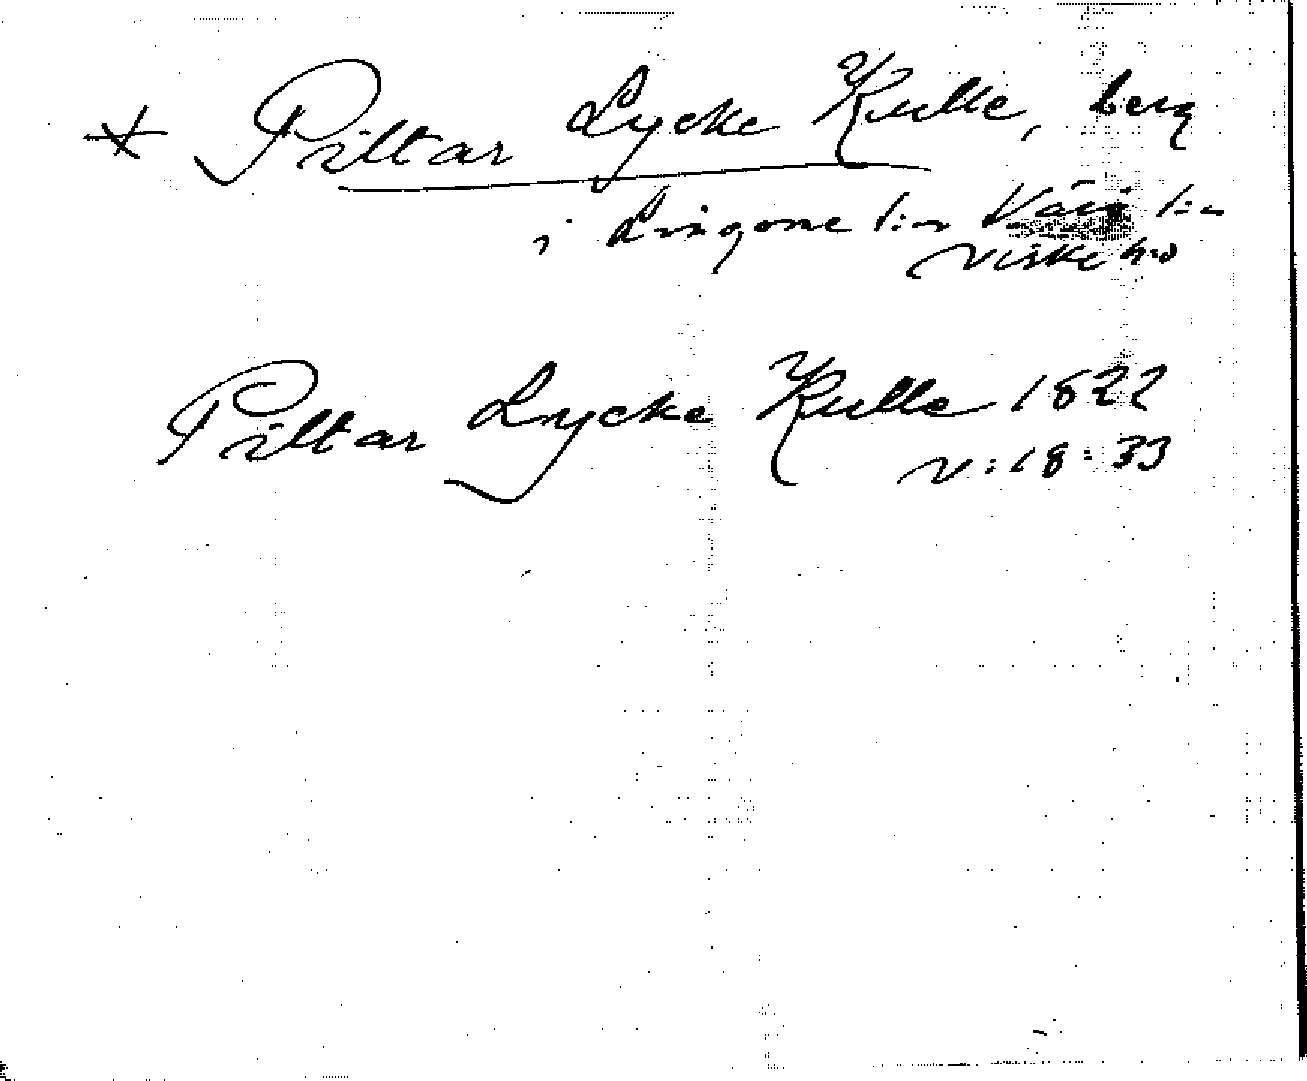 * Piltar Lycke Kulle, berg
i Lingome l:n Värö s:n
Viske h:d
Piltar Lycke Kulle 1822
V:18:33